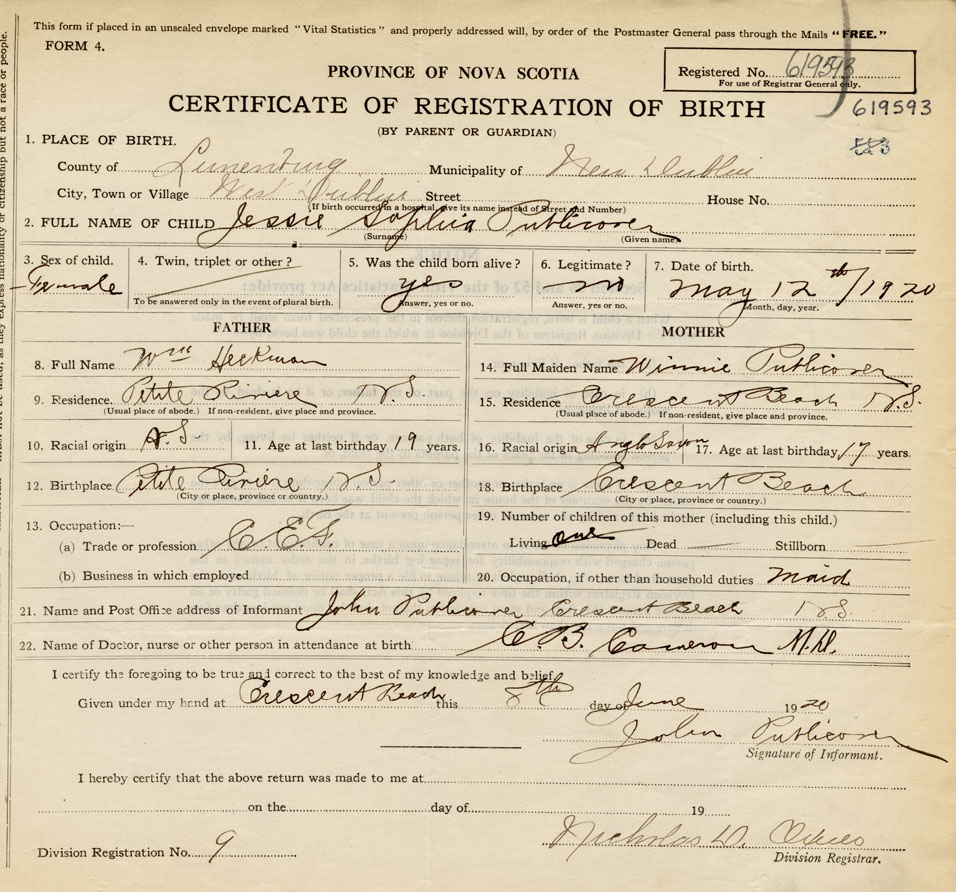 This form if placed in an unsealed envelope marked "Vital Statistics" and properly addressed will, by order of the Postmaster General pass through the Mails "FREE."
FORM 4.
Registered No. 619593
For use of Registrar General only.
PROVINCE OF NOVA SCOTIA
CERTIFICATE OF REGISTRATION OF BIRTH
619593
(BY PARENT OR GUARDIAN)
1. PLACE OF BIRTH.
County of Lunenburg Municipality of New Dublin
City, Town or Village West Dublin Street House No.
(If birth occurred in a hospital, give its name instead of Street and Number)
2. FULL NAME OF CHILD Jessie Sophia Publicover
(Surname) (Given name)
3. Sex of child. 4. Twin, triplet or other? 5. Was the child born alive? 6. Legitimate? 7. Date of birth.
Female yes no May 12th/1920
To be answered only in the event of plural birth. Answer, yes or no. Answer, yes or no. Month, day, year.
FATHER MOTHER
8. Full Name Wm Heckman
14. Full Maiden Name Winnie Publicover
9. Residence. Petite Riviere N.S.
(Usual place of abode.) If non-resident, give place and province.
15. Residence Crescent Beach N.S.
(Usual place of abode.) If non-resident, give place and province.
10. Racial origin A.S. 11. Age at last birthday 19 years.
16. Racial origin Anglo Saxon 17. Age at last birthday 17 years.
12. Birthplace Petite Riviere N.S.
(City or place, province or country.)
18. Birthplace Crescent Beach
(City or place, province or country.)
13. Occupation:—
(a) Trade or profession C.E.F.
(b) Business in which employed
19. Number of children of this mother (including this child.)
Living one Dead Stillborn
20. Occupation, if other than household duties maid
21. Name and Post Office address of Informant John Publicover Crescent Beach N.S.
22. Name of Doctor, nurse or other person in attendance at birth C.B. Cameron M.D.
I certify the foregoing to be true and correct to the best of my knowledge and belief.
Given under my hand at Crescent Beach this 8th day of June 1920
John Publicover
Signature of Informant.
I hereby certify that the above return was made to me at
on the day of 19
Nicholas D.
Division Registration No. 9
Division Registrar.